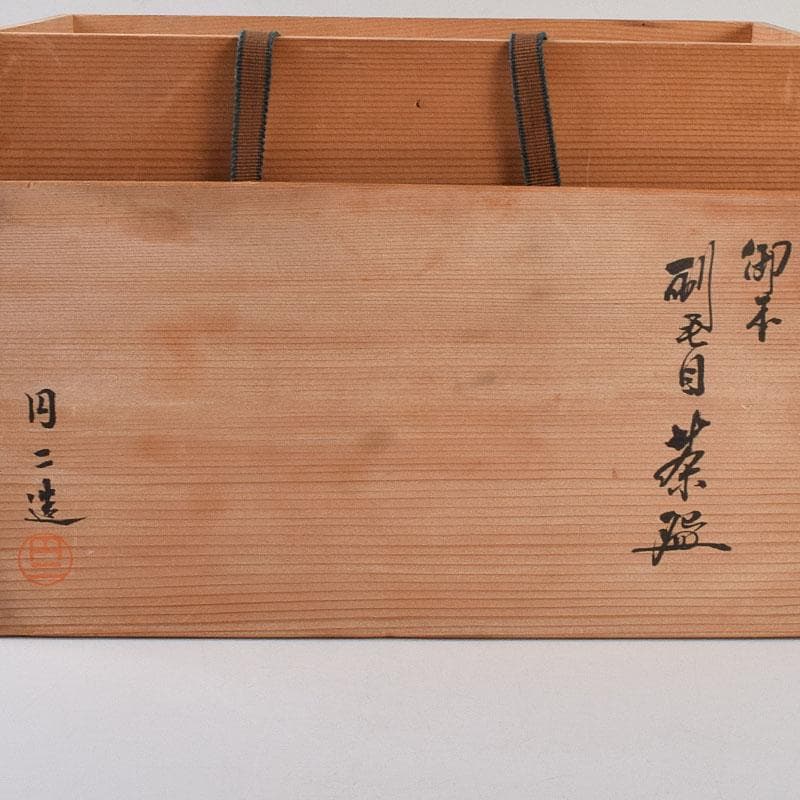 御本
刷毛目茶碗
円二造
円二